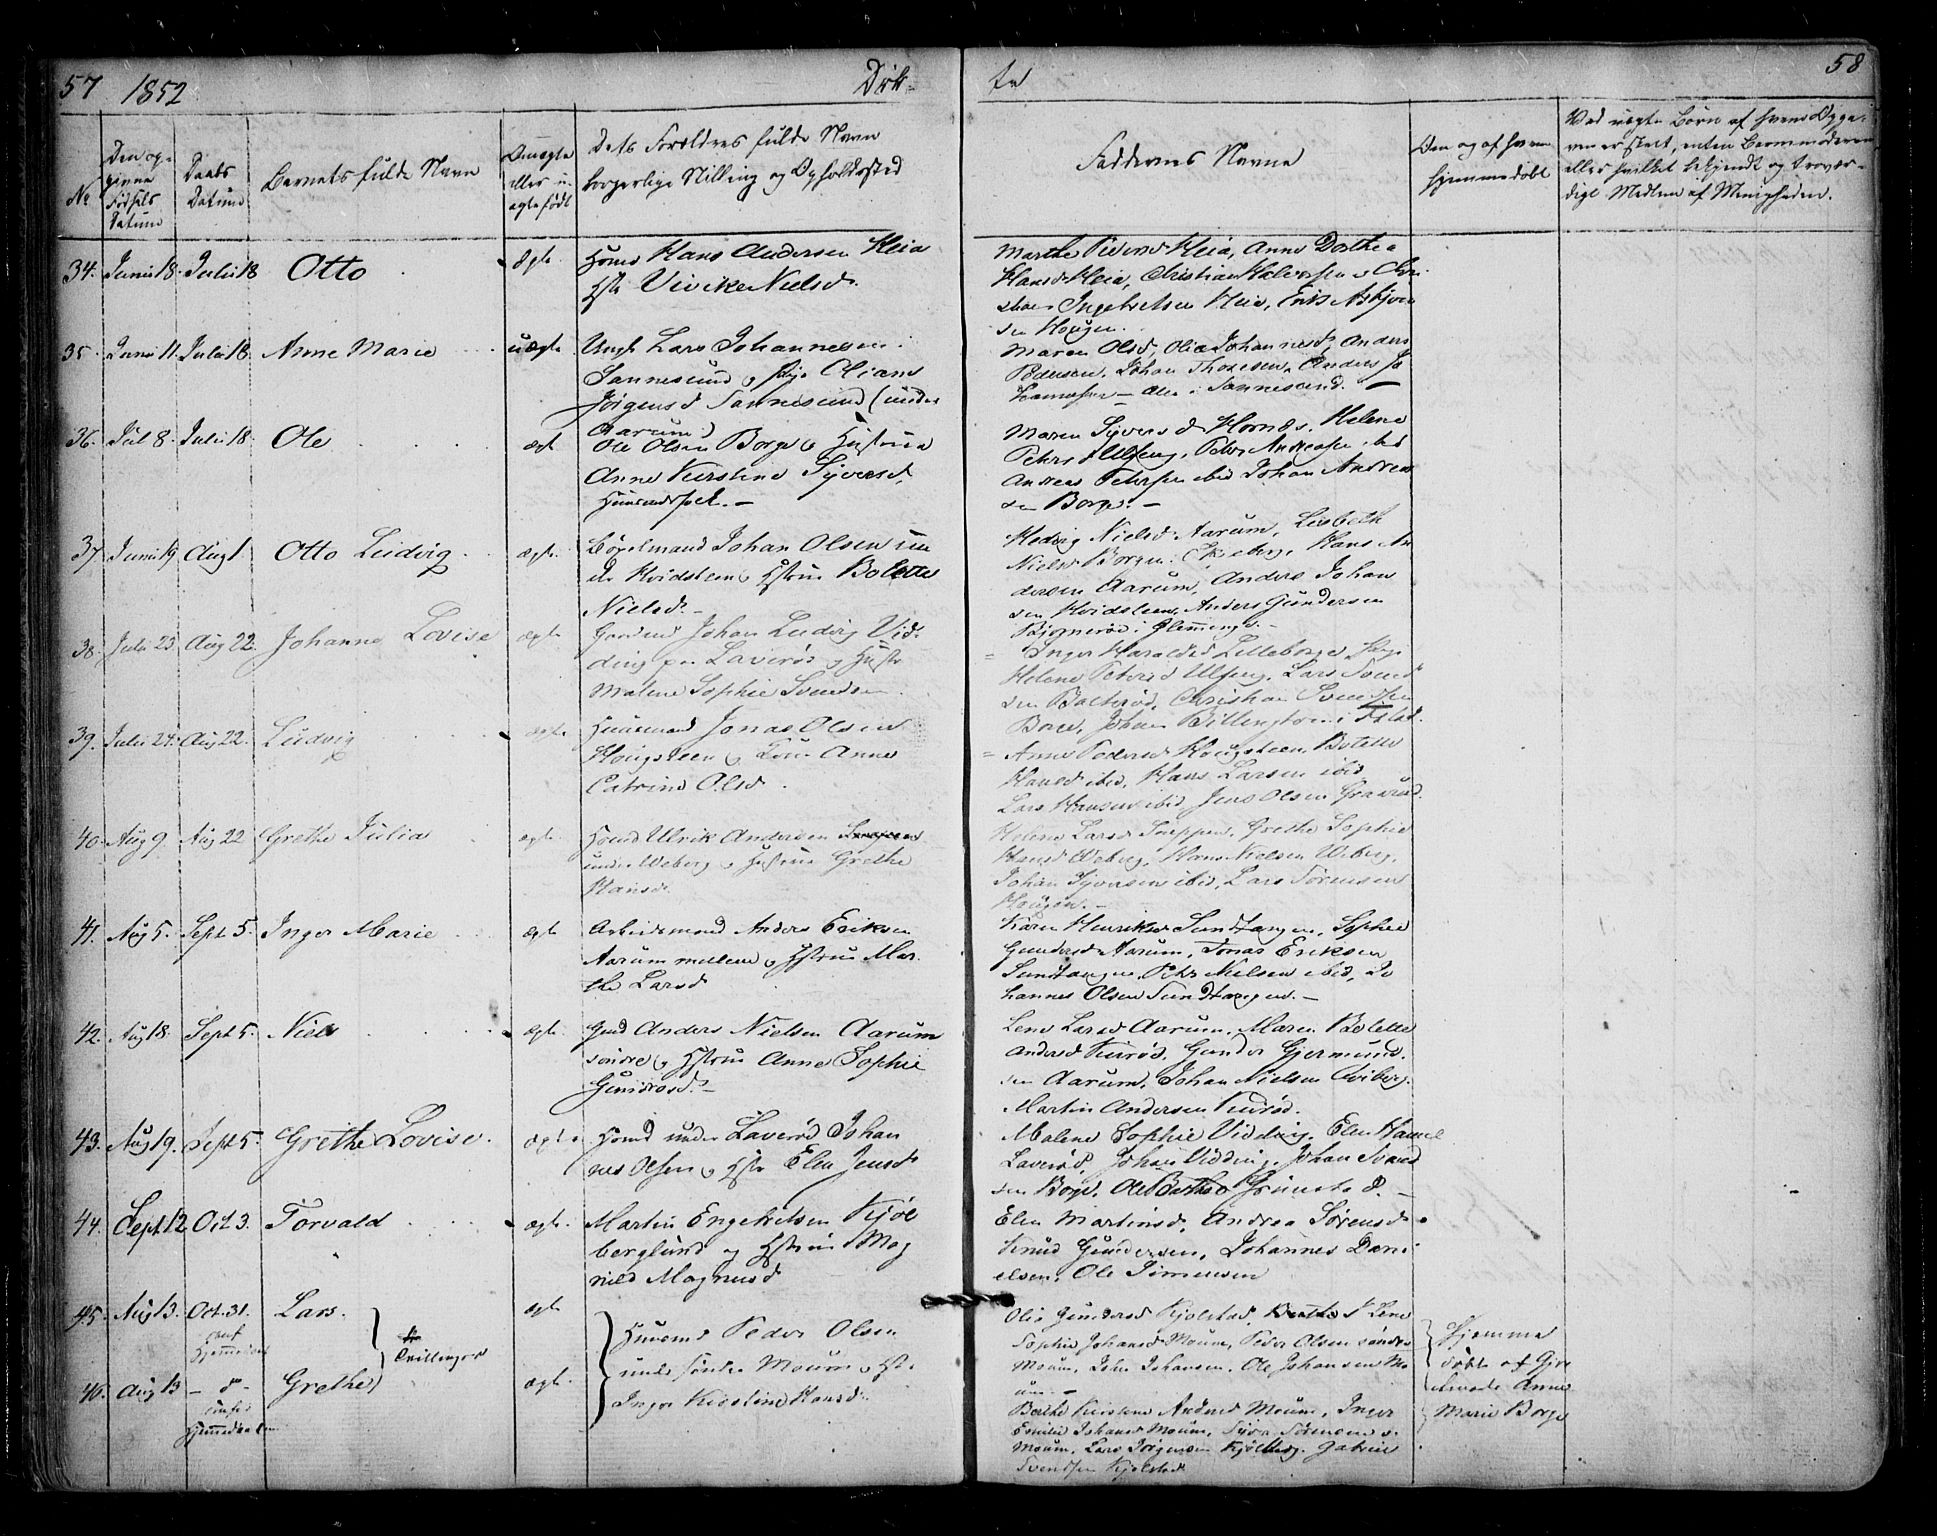 57 1852 Døb-
te 58
No
Den op-
givne
Fødsels
Datum
Daabs
Datum
Barnets fulde Navn
Om ægte
eller u-
ægte født
Dets Forældres fulde Navn
borgerlige Stilling og Opholdssted
Faddernes Navne
Om og af hvem
hjemmedøbt
Ved uægte Børn af hvem Opga-
ven er skeet, enten Barnemoderen
eller hvilket bekjendt og trovær-
digt Medlem af Menigheden.
34. Juni 18. Juli 18 Otto ægte
Hans Andersen Heia
Vivike Nielsd.
Marthe Heia, Anne Dorthea
Hansd Heia, Christian Halvorsen
Ingebretsen Heia, Erik Asbjørn
sen Hougen.
35. Juni 11. Juli 18. Anne Marie uægte
Ungk Lars Johannesen
Sannesund og Pige Oliane
Jörgensd Sannesund (under
Aarum)
Maren Olsd, Olea Johannesd, Anders
Pedersen, Johan Thoresen, Anders Jo
hannesen — alle i Sannesund. —
36. Jul 8. Julii 18. Ole ægt
Ole Olsen Borge og Hustrue
Anne Kirstine Syversd,
Huusmandsfolk. —
Maren Syversd Hornes, Helene
Peters d Ulfeng, Peter Andreasen ibid
Andreas Petersen ibid Johan Andrea
sen Borge. —
37. Juni 19. Aug 1. Otto Ludvig ægte.
Bögelmand Johan Olsen un
der Hvidsteen og Hstrue Bolette
Nielsd. —
Hedvig Nielsd Aarum, Lisbeth
Nielsd Borgen, Hans An
dersen Aarum, Anders Johan
sen Hvidsteen, Anders Gundersen
Bjørnerød i Glemminge. —
38. Julii 23 Aug 22. Johanne Lovise ægte
Gaardmd Johan Ludvig Vid-
ding paa Laverød og Hustr
Malene Sophie Svendsen.
Inger Haraldsd Lilleborge, Pige
Helene Petersd Ulfeng, Lars Svend
sen Bakkerød, Christian Svendsen
Borge, Johan Billington i Fstad.
39. Julii 24. Aug 22. Ludvig ægte
Huusmand Jonas Olsen
Hougsteen og Kone Anne
Catrine Olsd.
Anne Pedersd Hougsteen, Bolette
Hansd ibid, Hans Larsen ibid
Lars Hansen ibid, Jens Olsen
40. Aug 9. Aug 22 Grethe Julia ægte.
Hmd Ulrik Andersen
under Weberg og Hustrue Grethe
Hansd.
Helene Larsd Snippen, Grethe Sophie
Hansd Weberg, Hans Nielsen Weberg,
Johan Syversen ibid, Lars Sörensen
Hougen. —
41. Aug 5. Sept 5. Inger Marie ægte
Arbeidsmand Anders Eriksen
Aarum mellem og Hstrue Mar-
the Larsd
Karen Henriksd Sundtangen, Sophie
Gundersd Aarum, Jonas Eriksen
Sundtangen, Peter Nielsen ibid, Jo
hannes Olsen Sundtangen. —
42. Aug 18. Sept 5. Niels ægte.
Gmd Anders Nielsen Aarum
søndre og Hstrue Anne Sophie
Gundersd. —
Lene Larsd Aarum, Maren Bolette
Andersd, Gunder Gjermund-
sen Aarum, Johan Nielsen Viberg,
Martin Andersen
43. Aug 19. Sept 5. Grethe Lovise. ægte
Hmd under Laverød Johan
nes Olsen og Hstr Elen Jensd
Malene Sophie Vidding, Elen Hansd
Laverød, Johan Vidding, Johan Svend
sen Borge, Ole Grimstad. —
44. Sept 12 Oct 3. Torvald ægte.
Martin Engebretsen Kjöl
berglund og Hstrue Mag
nild Magnusd
Elen Martinsd, Andrea Sörensd
Knud Gundersen, Johannes Dani
elsen, Ole Simensen
45. Aug 13. Oct. 31. Lars. ægte
Tvillinger
46. Aug 13 — d — Grethe ægte.
Huusmd Peder Olsen
under söndre Moum og Hstr
Inger Kirstine Hansd.
Olia Gundersd Kjølstad, Lene
Sophie Johansd Moum, Peder Olsen søndre
Moum, John Johansen, Ole Johansen Mo
um. —
Berthe Kirstine Andersd Moum, Inger
Emilie Johansd Moum, Syver Sörensen
Moum, Lars Jörgensen Kjölberg, Gabriel
Svendsen Kjølstad
Hjemme
døbte af Gjor
demode Anne
Marie Borge